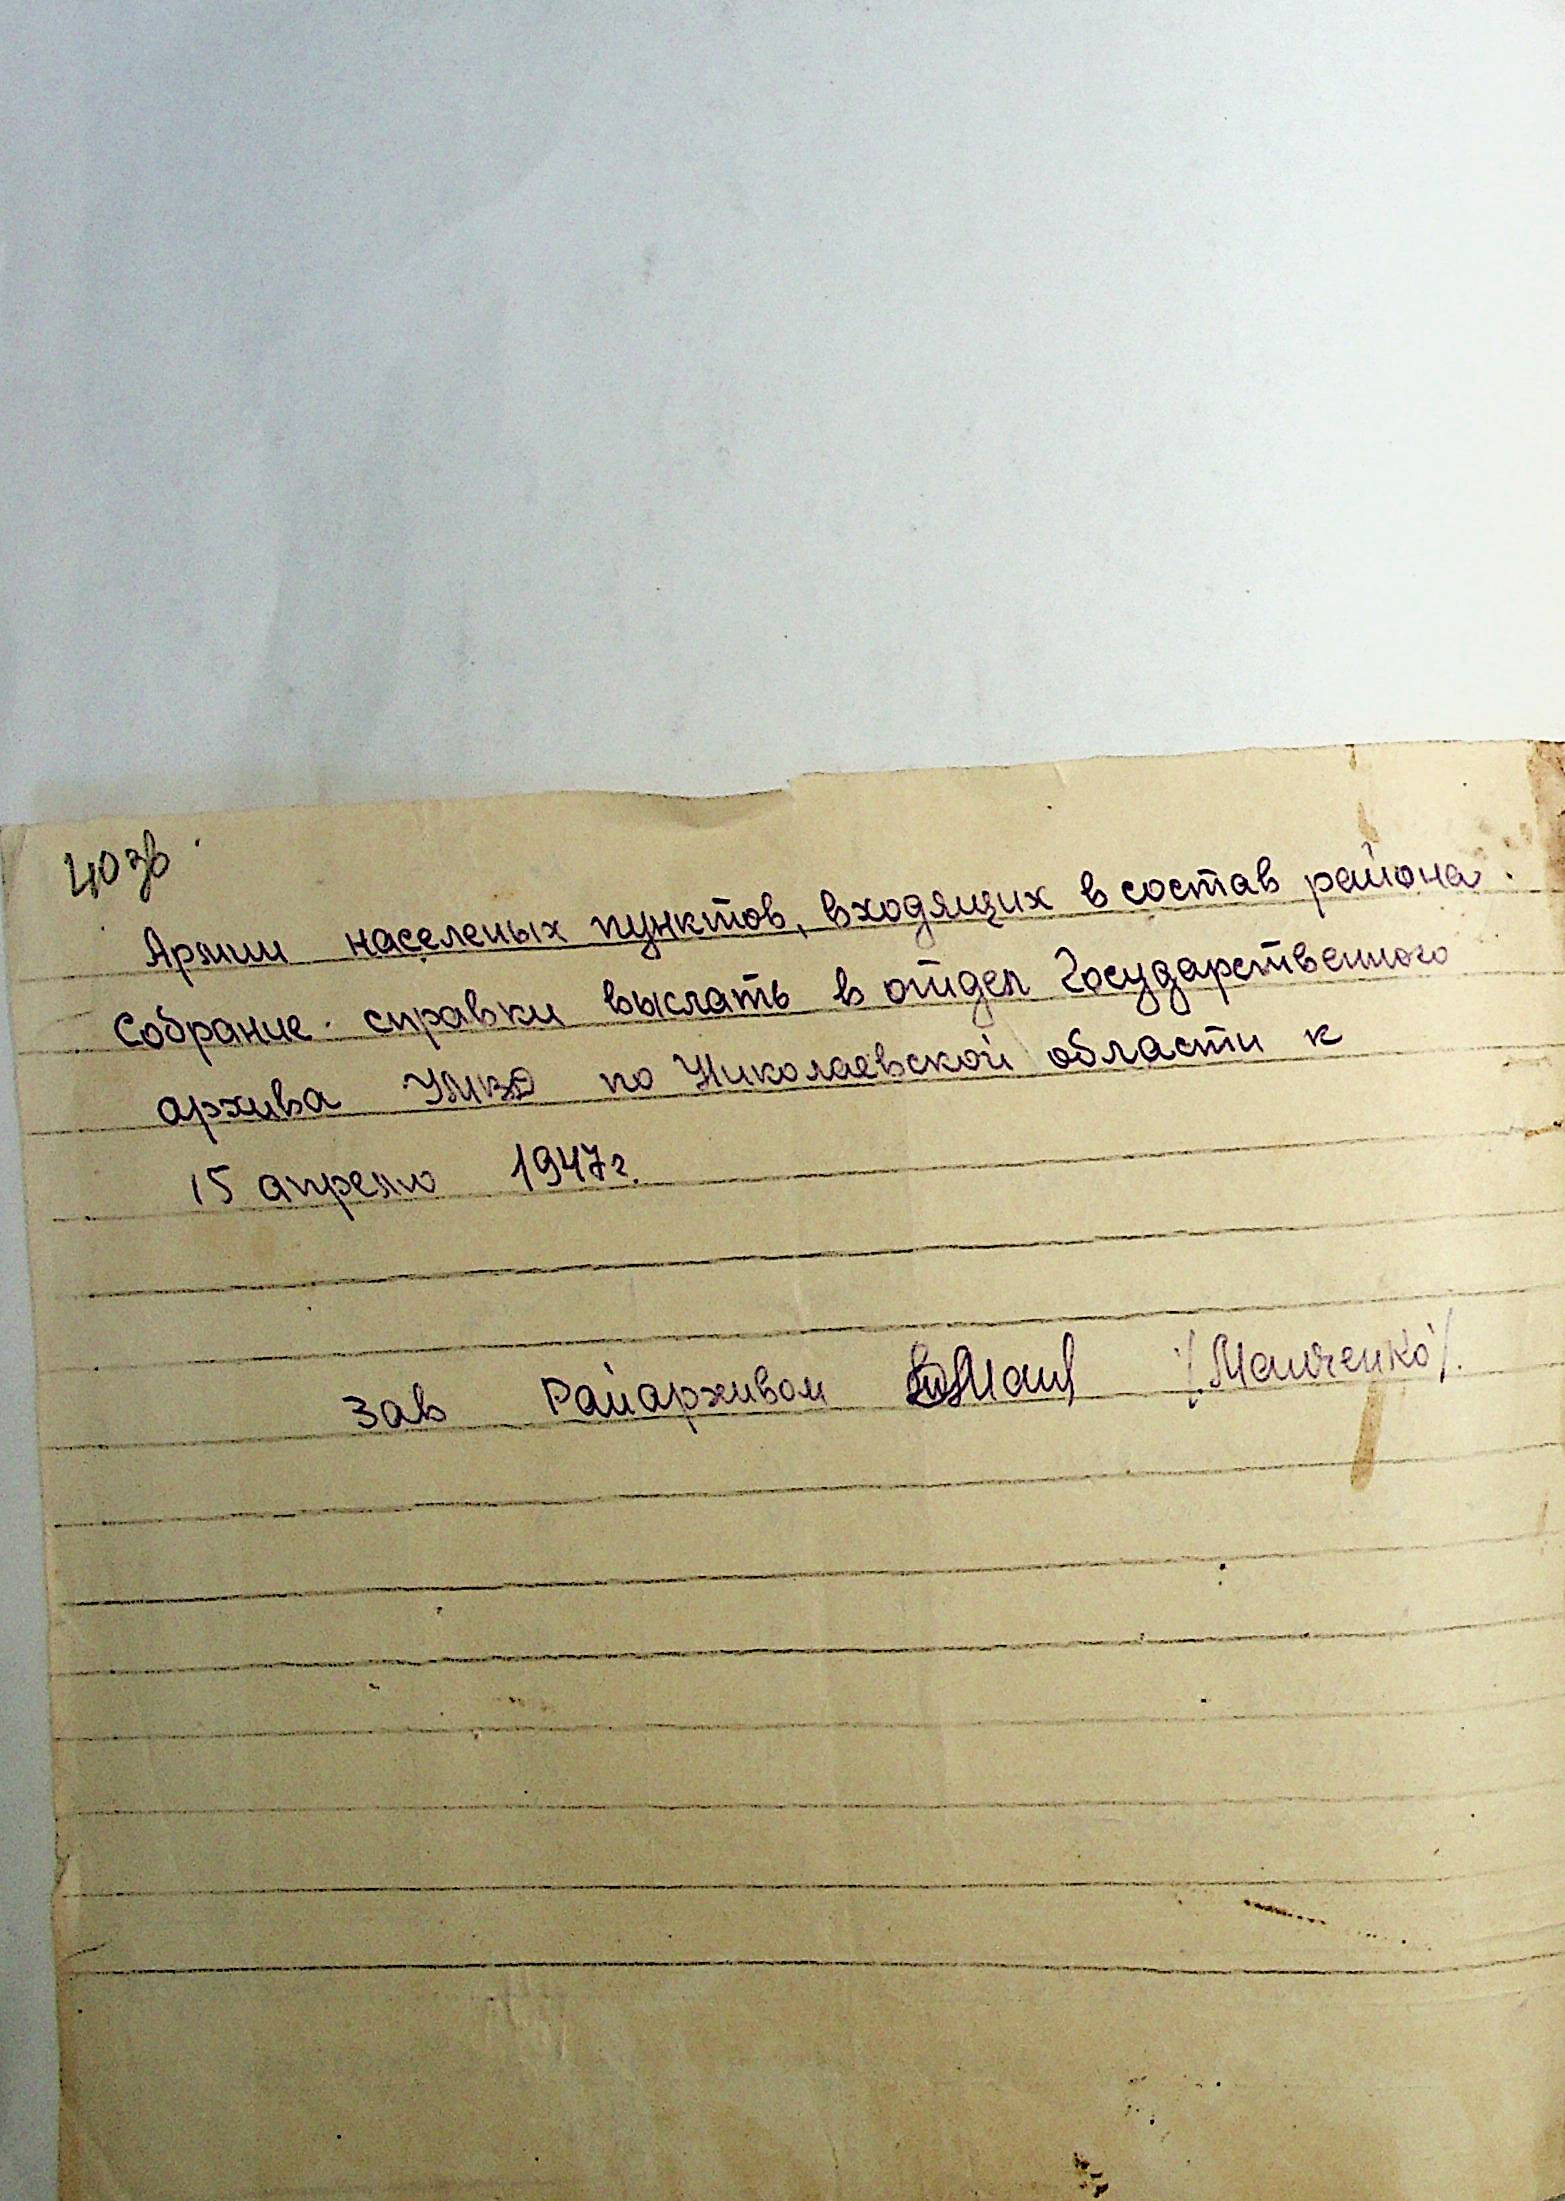 40 зв
Армии населеных пунктов, входящих в состав района.
Собрание справки выслать в отдел Государственного
архива УМВД по Николаевской области к
15 апрелю 1947 г.
Зав Райархивом /Манченко/.